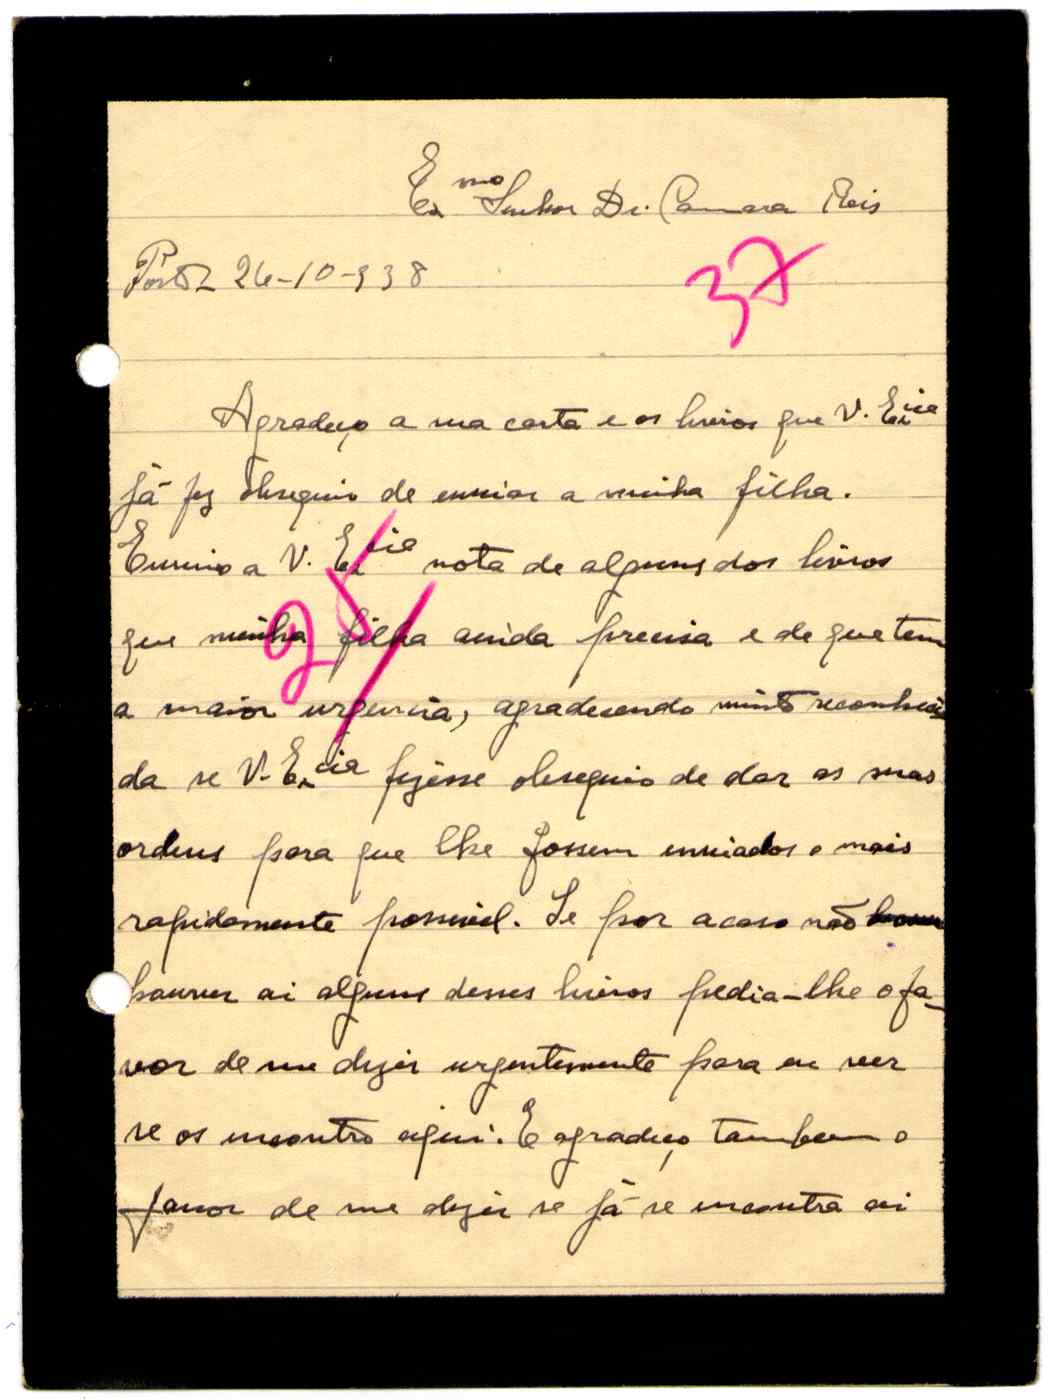 Exmo Senhor Dr. Camara Reis
Porto 26-10-938
37
Agradeço a sua carta e os livros que V. Excia
já fez obsequio de enviar a minha filha.
Envio a V. Excia nota de alguns dos livros
que minha filha ainda precisa e de que tem
a maior urgencia, agradecendo muito reconheci
da se V. Excia fizesse obsequio de dar as suas
ordens para que lhe fossem enviados o mais
rapidamente possivel. Se por acaso não
houver ai alguns desses livros pedia-lhe o fa-
vor de me dizer urgentemente para eu ver
se os encontro aqui. E agradeço tambem o
favor de me dizer se já se encontra ai